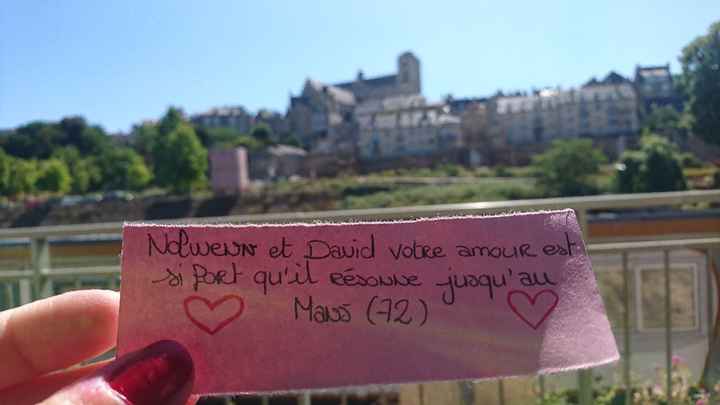 Nolwenn et David votre amour est
si fort qu'il résonne jusqu'au
Mans (72)